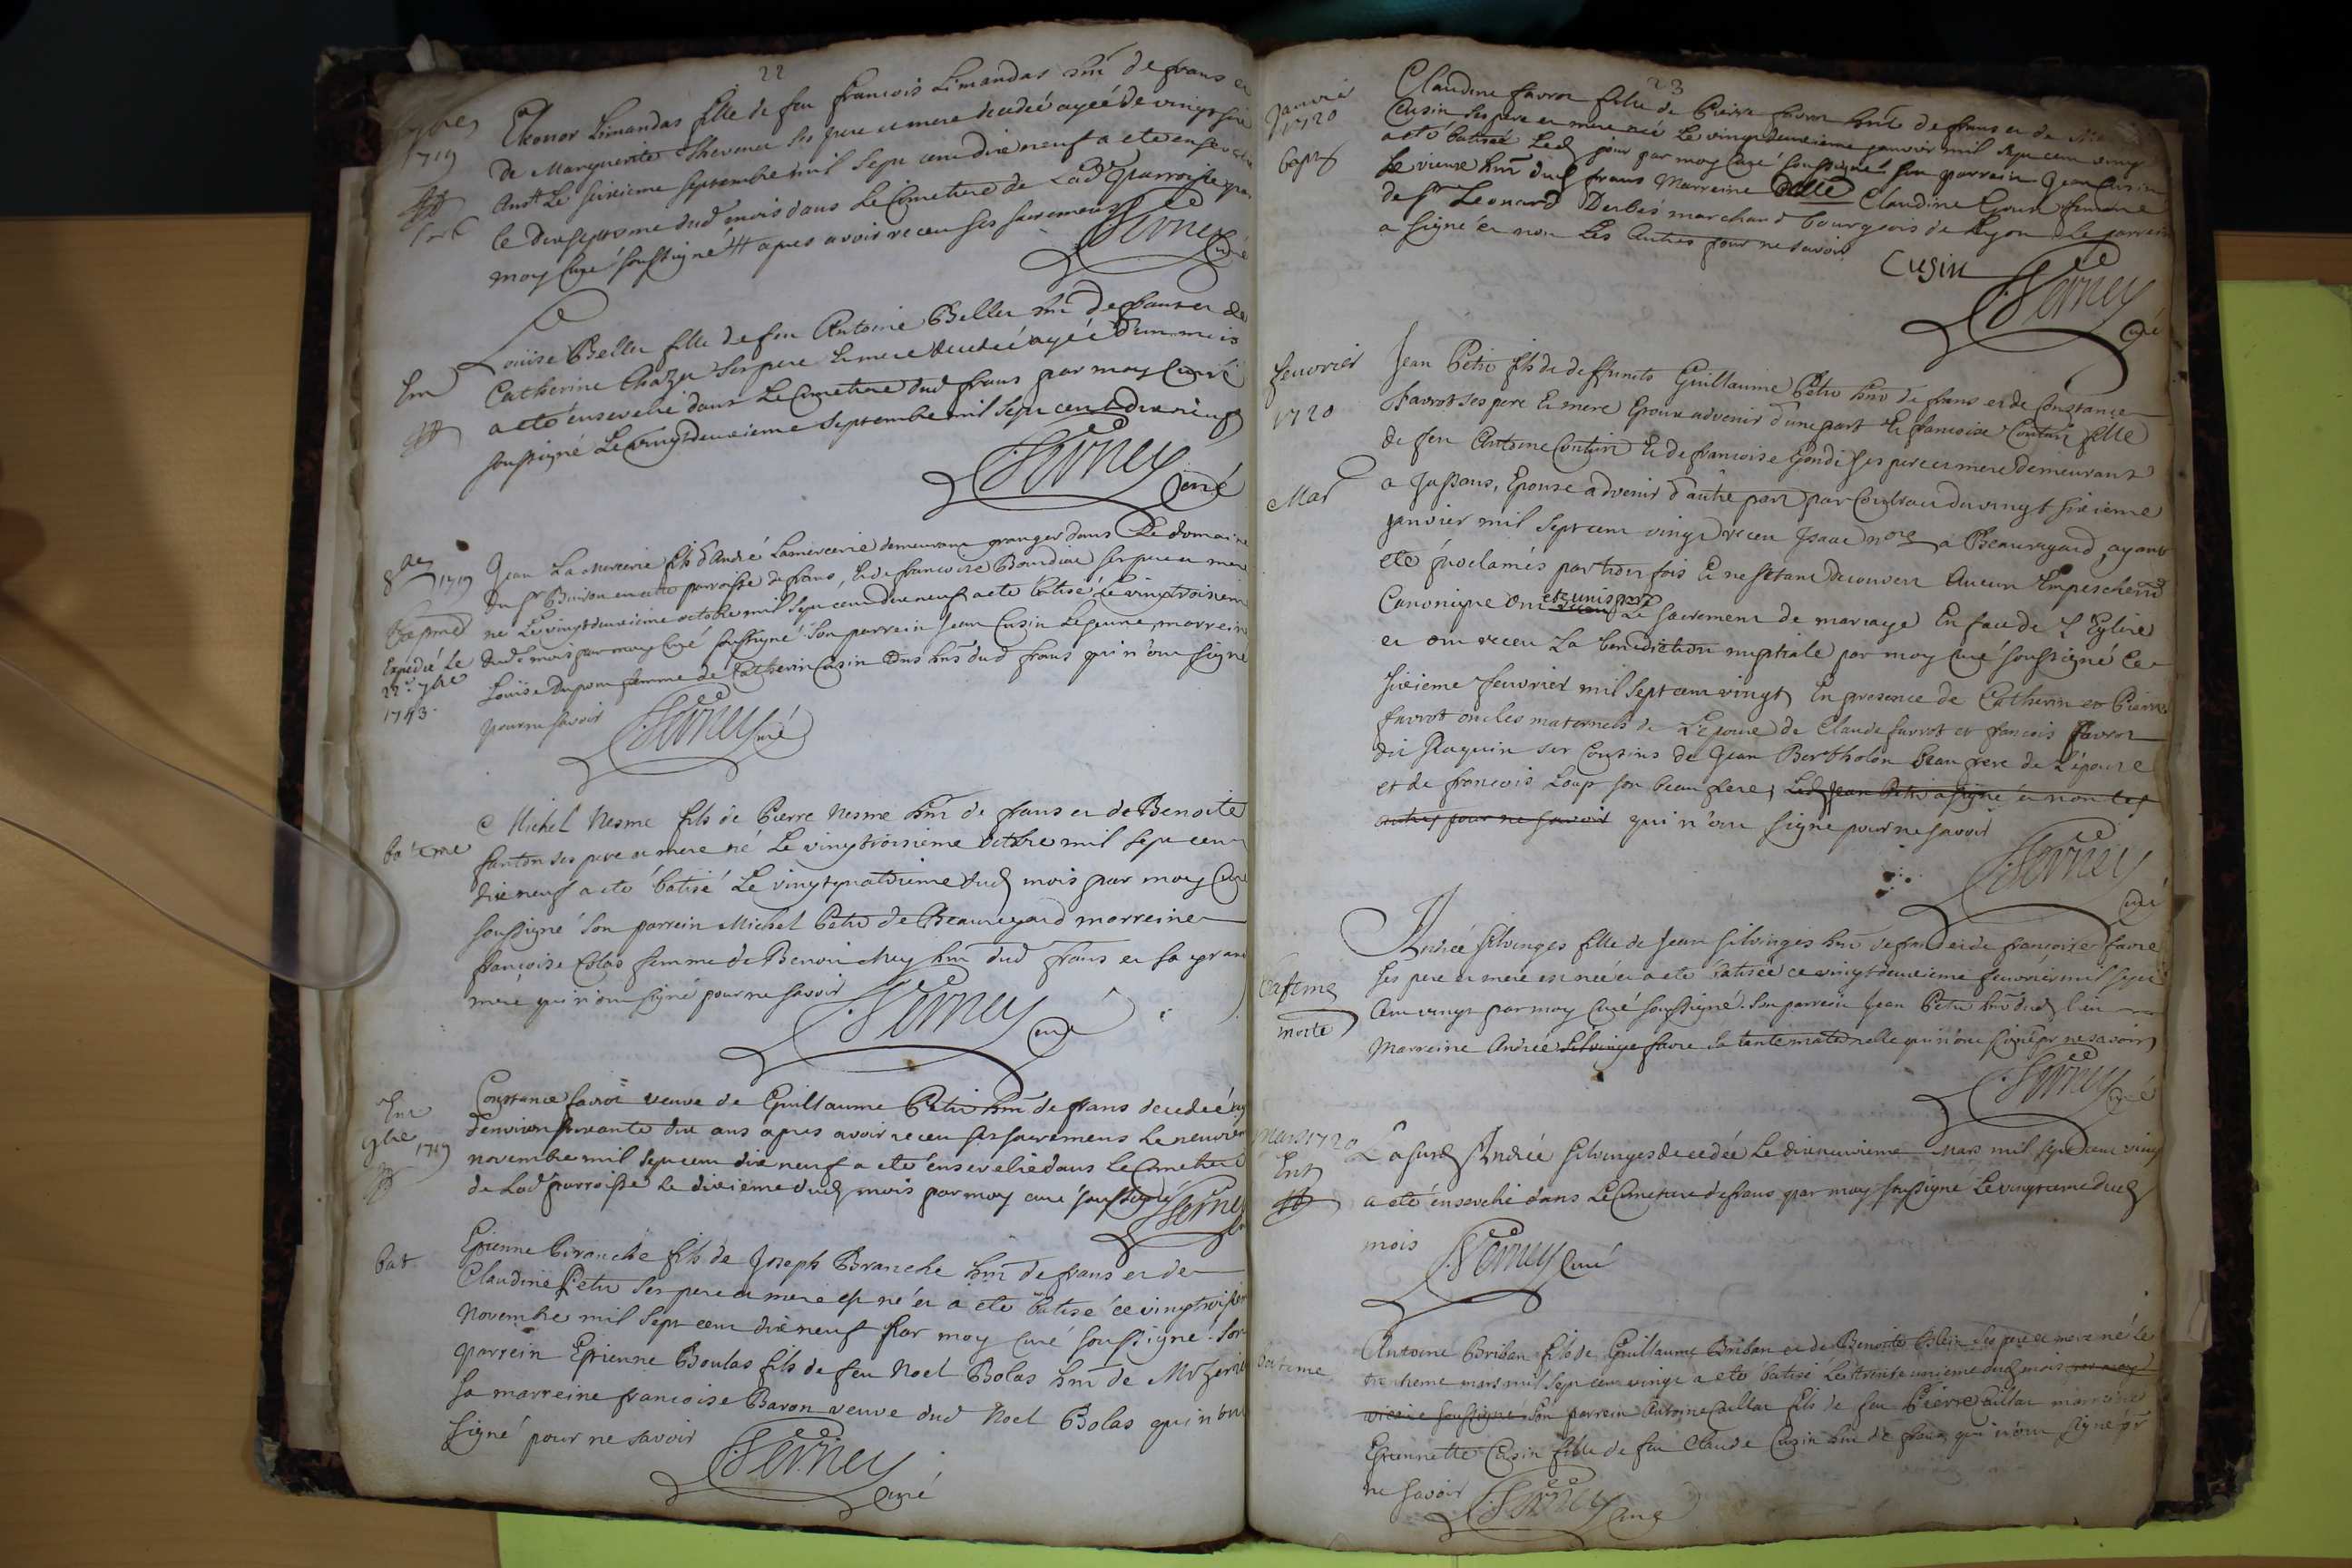 22
7bre
1719
Eleonor Limandas fille de feu francois Limandas hnt de frans et
de Marguerite Thevenet ses pere et mere decedeé ageé de vingt
Ans Le seizieme septembre mil sept cent dix neuf a eté ensevelie
le dixseptieme dud mois dans Le Cimetiere de Lad parroisse par
moy Curé soussigné apres avoir receu ses sacremens
Verney Curé
Ent
Loüise Bellet fille de feu Antoine Bellet hnt de frans et de
Catherine Chazet ses pere et mere decedeé ageé d'un mois
a eté ensevelie dans Le Cimetiere dud frans par moy Curé
soussigné Le vingtdeuxieme septembre mil sept cent dix neuf
Verney Curé
8bre 1719
Expedié Le
22e 9bre
1743.
Jean Lamercerie fils d'André Lamercerie demeurant granger dans Le domaine
du Sr Buisson en cette parroisse de frans, et de francoise Bourdin ses pere et mere
né Le vingtdeuxieme octobre mil sept cent dix neuf a eté batisé Le vingtroisieme
dud mois par moy Curé soussigné Son parrein Jean Cusin Le jeune, marreine
Loüise Dupon femme de Catherin Cusin tous hns dud frans qui n'ont signé
pour ne savoir
Verney curé
bateme
Michel Nesme fils de Pierre Nesme hnt de frans et de Benoite
fanton ses pere et mere né Le vingtroisieme octobre mil sept cent
dix neuf a eté batisé Le vingtquatrieme dud mois par moy Curé
soussigné Son parrein Michel Petit de Beauregard marreine
francoise Colas femme de Benoit huy hnt dud frans et sa grand
mere qui n'ont signé pour ne savoir
Verney curé
Ent
9bre 1719
Constance favrot veuve de Guillaume Petit hnt de frans decedeé
d'environ soixante dix ans apres avoir receu ses sacremens Le neuvieme
novembre mil sept cent dix neuf a eté ensevelie dans Le Cimetiere
de Lad parroisse Le dixieme dud mois par moy curé soussigné
Verney
bat
Etienne Branche fils de Joseph Branche hnt de frans et de
Claudine Petit ses pere et mere est né et a eté batisé ce vingtroisieme
Novembre mil sept cent dix neuf Par moy Curé soussigné. Son
parrein Etienne Boulas fils de feu Noel Bolas hnt de Mizerieu
sa marreine francoise Baron veuve dud Noel Bolas qui n'ont
signé pour ne savoir
Verney Curé
23
Janvier
1720
bapt
Claudine favrot fille de Pierre favrot hnt de frans et de
Cusin ses pere et mere neé Le vingtdeuxieme janvier mil sept cent vingt
a eté batiseé Led jour par moy Curé soussigné Son parrein Jean Cusin
Le vieux hnt dud frans Marreine Delle Claudine femme
de Sr Leonard Derbes marchand bourgeois de Lyon. Le parrein
a signé et non Les Autres pour ne savoir
Cusin
Verney Curé
feuvrier
1720
Mar
Jean Petit fils de deffuncts Guillaume Petit hnt de frans et de Constance
favrot ses pere et mere Epoux advenir d'une part Et francoise Couturi fille
de feu Antoine Couturi et de francoise Gondi ses pere et mere demeurant
a Jassans, Epouse advenir d'autre part par Contract du vingt sixieme
janvier mil sept cent vingt receu Isaac nore a Beauregard, ayant
eté proclamés par trois fois Et ne s'étant decouvert Aucun Empeschemt
Canonique ont eté unis par Le sacrement de mariage En face de L'Eglise
et ont receu La benediction nuptiale par moy curé soussigné Le
sixieme feuvrier mil sept cent vingt En presence de Catherin et Pierre
favrot oncles maternels de L'Epoux de Claude favrot et francois favrot
dit Raquin ses Cousins de Jean Bertholon beau frere de L'épouse
et de francois Loup son beau frere, Led Jean Petit a signé et non Les
autres pour ne savoir qui n'ont signé pour ne savoir
Verney curé
Bateme
morte
Andreé Silvinges fille de Jean Silvinges hnt de frans et de francoise favre
ses pere et mere est neé et a eté batiseé ce vingtdeuxieme feuvrier mil sept
Cent vingt par moy Curé soussigné. Son parrein Jean Petit hnt dud lieu
Marreine Andreé Silvinge favre sa tante maternelle qui n'ont signé pr ne savoir
Verney Curé
Mars 1720
Ent
La susd Andreé Silvinges decedée Le dixneuvieme Mars mil sept cent vingt
a eté ensevelie dans Le Cimetiere de frans par moy soussigné Le vingtieme dud
mois
Verney Curé
Bateme
Antoine Briban fils de Guillaume Briban et de Benoite Blein ses pere et mere né Le
trentieme mars mil sept cent vingt a eté batisé Le trente unieme dud mois par moy
vicaire soussigné Son parrein Antoine Caillat fils de feu Pierre Caillat marreine
Etiennette Cusin fille de feu Claude Cusin hnt de frans qui n'ont signé pr
ne savoir
Verney Curé